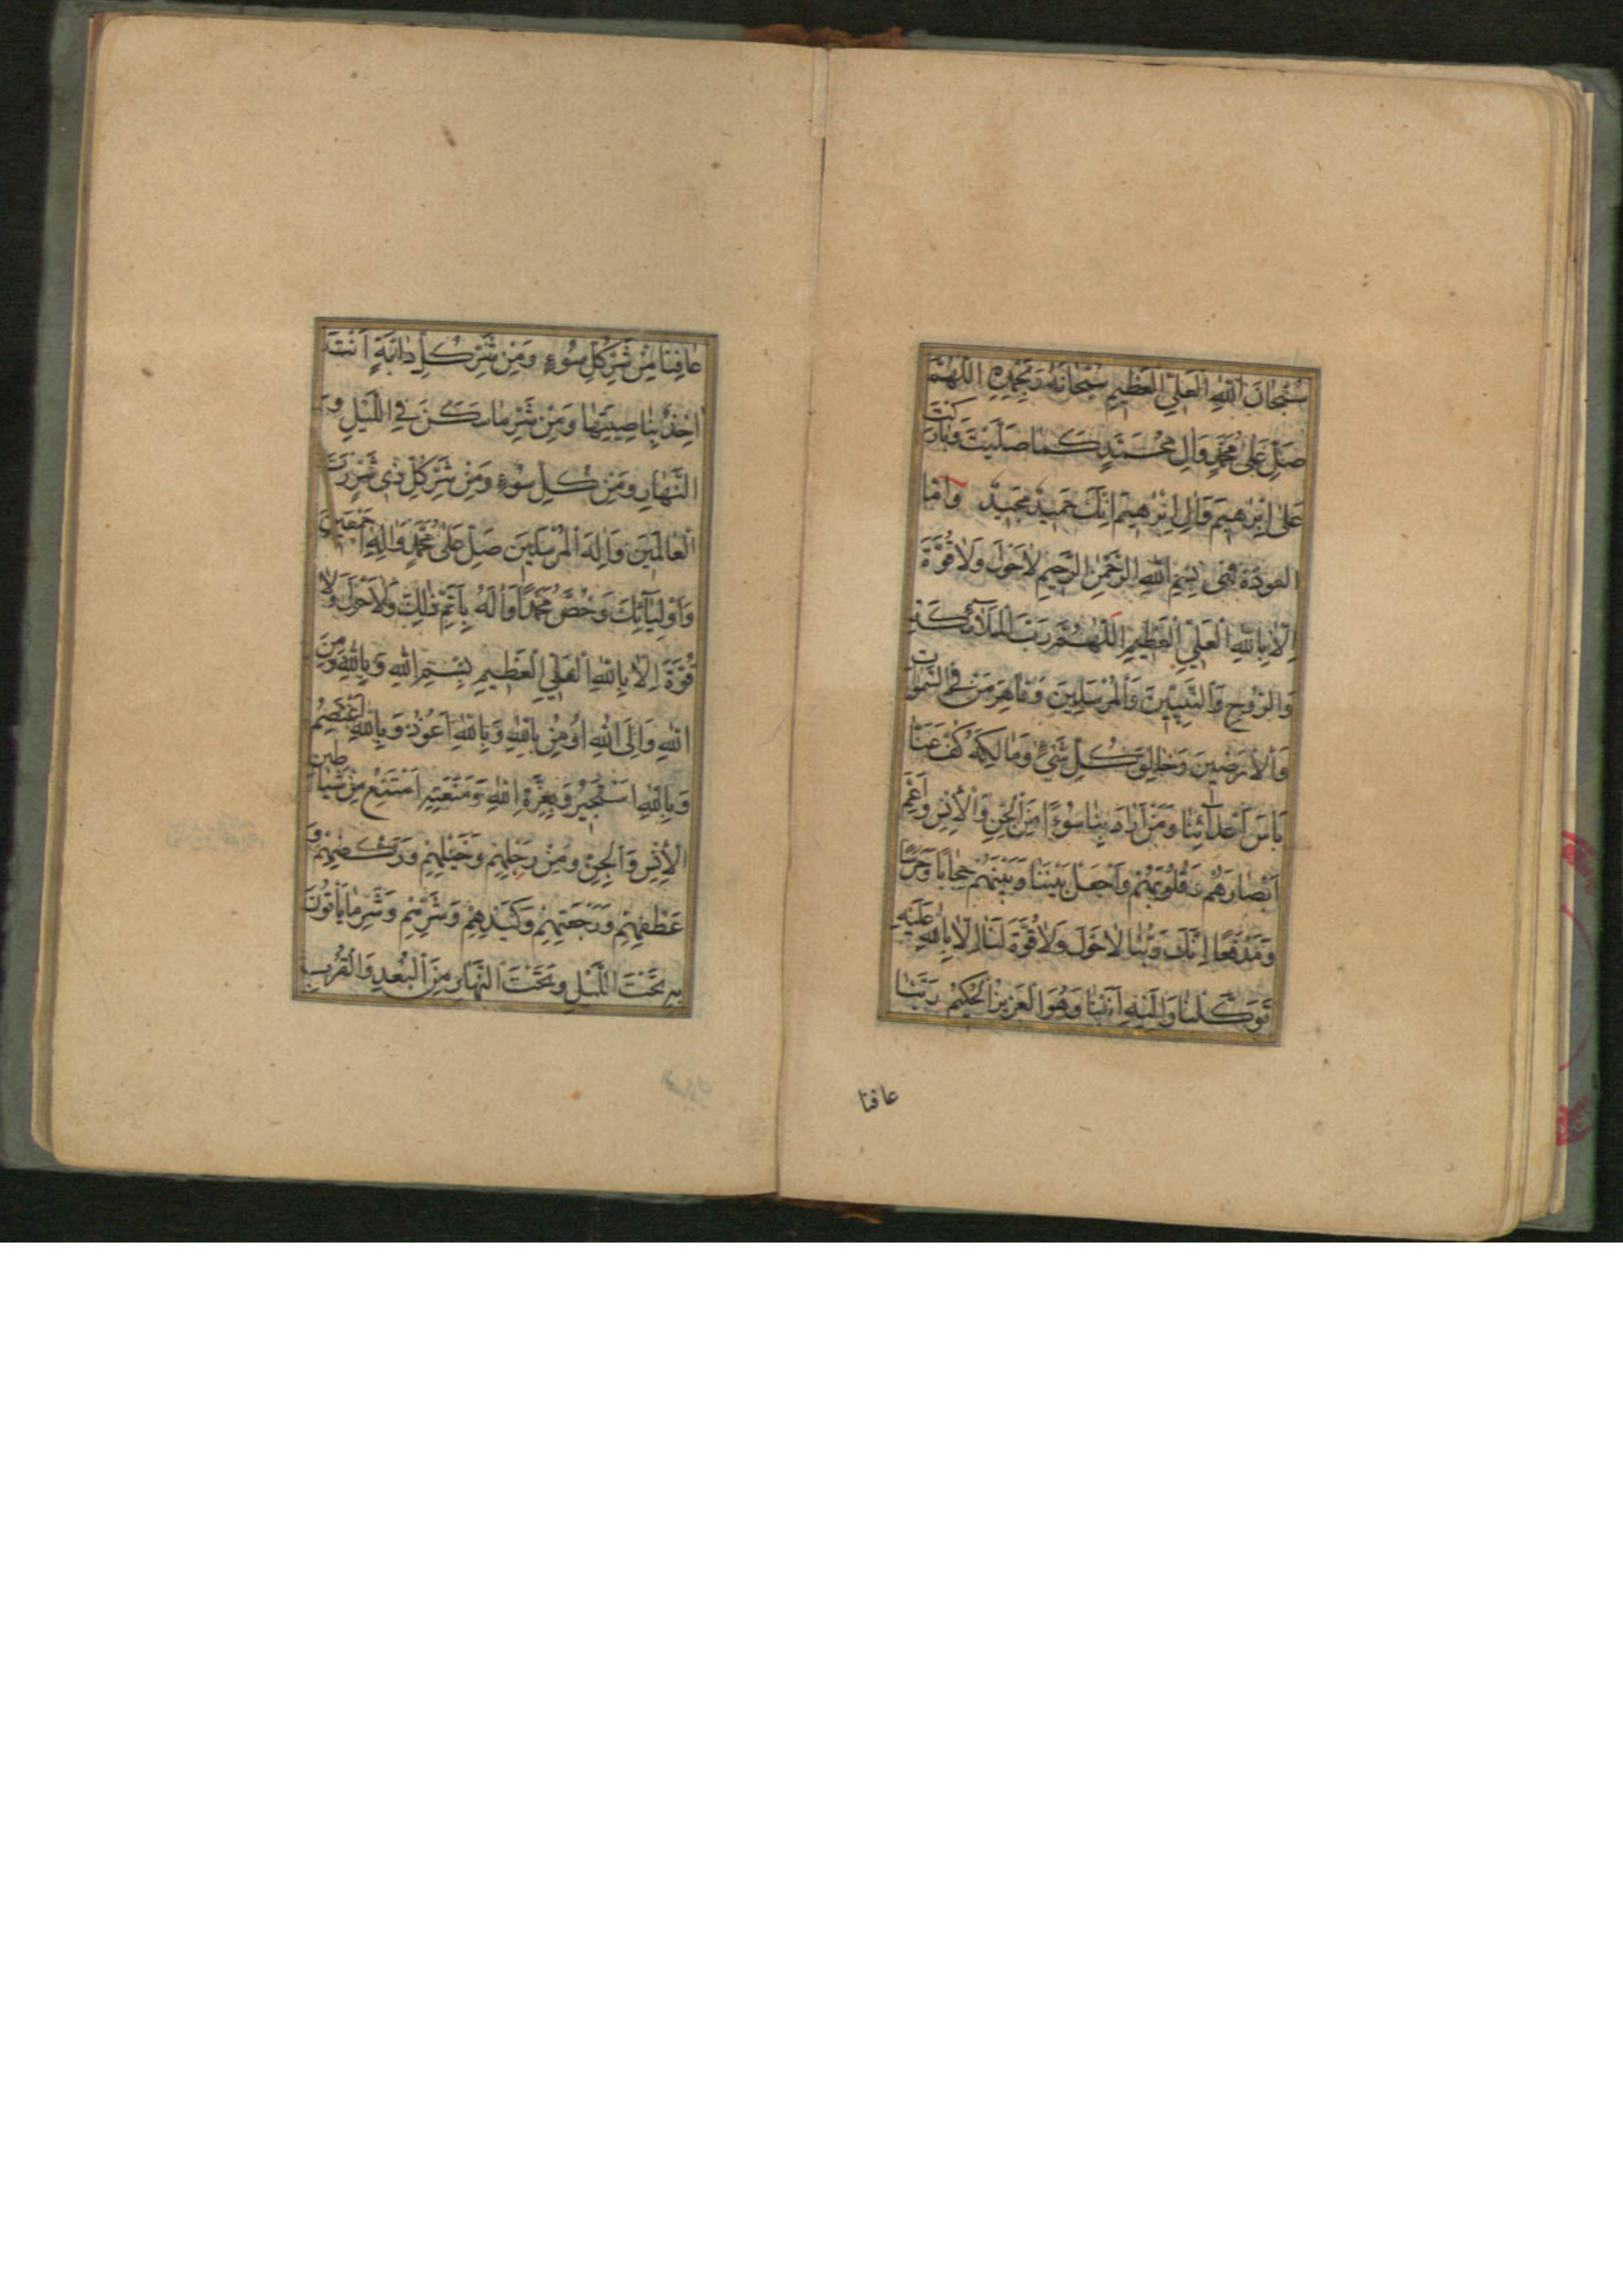 سُبْحَانَ اللّٰهِ الْعَلِيِّ الْعَظِيمِ سُبْحَانَهُ وَبِحَمْدِهِ اَللّٰهُمَّ
صَلِّ عَلٰى مُحَمَّدٍ وَاٰلِ مُحَمَّدٍ كَمٰا صَلَّيْتَ وَبٰارَكْتَ
عَلٰى اِبْرٰهِيمَ وَاٰلِ اِبْرٰهِيمَ اِنَّكَ حَمِيدٌ مَجِيدٌ وَاَمَّا
الْعُوذَةُ فَهِيَ بِسْمِ اللّٰهِ الرَّحْمٰنِ الرَّحِيمِ لاٰ حَوْلَ وَلاٰ قُوَّةَ
اِلاّٰ بِاللّٰهِ الْعَلِيِّ الْعَظِيمِ اَللّٰهُمَّ رَبَّ الْمَلآئِكَةِ
وَالرُّوحِ وَالنَّبِيِّينَ وَالْمُرْسَلِينَ وَقٰاهِرَ مَنْ فِي السَّمٰوٰاتِ
وَالْاَرَضِينَ وَخٰالِقَ كُلِّ شَيْءٍ وَمٰالِكَهُ كُفَّ عَنّٰا
بَأْسَ اَعْدٰآئِنٰا وَمَنْ اَرٰادَ بِنٰا سُوءًا مِنَ الْجِنِّ وَالْاِنْسِ وَاَعْمِ
اَبْصٰارَهُمْ وَقُلُوبَهُمْ وَاجْعَلْ بَيْنَنٰا وَبَيْنَهُمْ حِجٰابًا وَحَرَسًا
وَمَدْفَعًا اِنَّكَ رَبُّنٰا لاٰ حَوْلَ وَلاٰ قُوَّةَ لَنٰا اِلاّٰ بِاللّٰهِ عَلَيْهِ
تَوَكَّلْنٰا وَاِلَيْهِ اَنَبْنٰا وَهُوَ الْعَزِيزُ الْحَكِيمُ رَبَّنٰا
عافنا
عٰافِنٰا مِنْ شَرِّ كُلِّ سُوءٍ وَمِنْ شَرِّ كُلِّ دٰابَّةٍ اَنْتَ
اٰخِذٌ بِنٰاصِيَتِهٰا وَمِنْ شَرِّ مٰا سَكَنَ فِي اللَّيْلِ وَ
النَّهٰارِ وَمِنْ كُلِّ سُوءٍ وَمِنْ شَرِّ كُلِّ ذِي شَرٍّ رَبَّ
الْعٰالَمِينَ وَاِلٰهَ الْمُرْسَلِينَ صَلِّ عَلٰى مُحَمَّدٍ وَاٰلِهِ اَجْمَعِينَ
وَاَوْلِيٰآئِكَ وَخُصَّ مُحَمَّدًا وَاٰلَهُ بِاَتَمِّ ذٰلِكَ وَلاٰ حَوْلَ وَلاٰ
قُوَّةَ اِلاّٰ بِاللّٰهِ الْعَلِيِّ الْعَظِيمِ بِسْمِ اللّٰهِ وَبِاللّٰهِ وَمِنَ
اللّٰهِ وَاِلَى اللّٰهِ اُومِنُ بِاللّٰهِ وَبِاللّٰهِ اَعُوذُ وَبِاللّٰهِ اَعْتَصِمُ
وَبِاللّٰهِ اَسْتَجِيرُ وَبِعِزَّةِ اللّٰهِ وَمَنَعَتِهِ اَمْتَنِعُ مِنْ شَيٰاطِينِ
الْاِنْسِ وَالْجِنِّ وَمِنْ رَجِلِهِمْ وَخَيْلِهِمْ وَرَكْضِهِمْ وَ
عَطْفِهِمْ وَرَجْعَتِهِمْ وَكَيْدِهِمْ وَشَرِّهِمْ وَشَرِّ مٰا يَأْتُونَ
بِهِ تَحْتَ اللَّيْلِ وَتَحْتَ النَّهٰارِ مِنَ الْبُعْدِ وَالْقُرْبِ